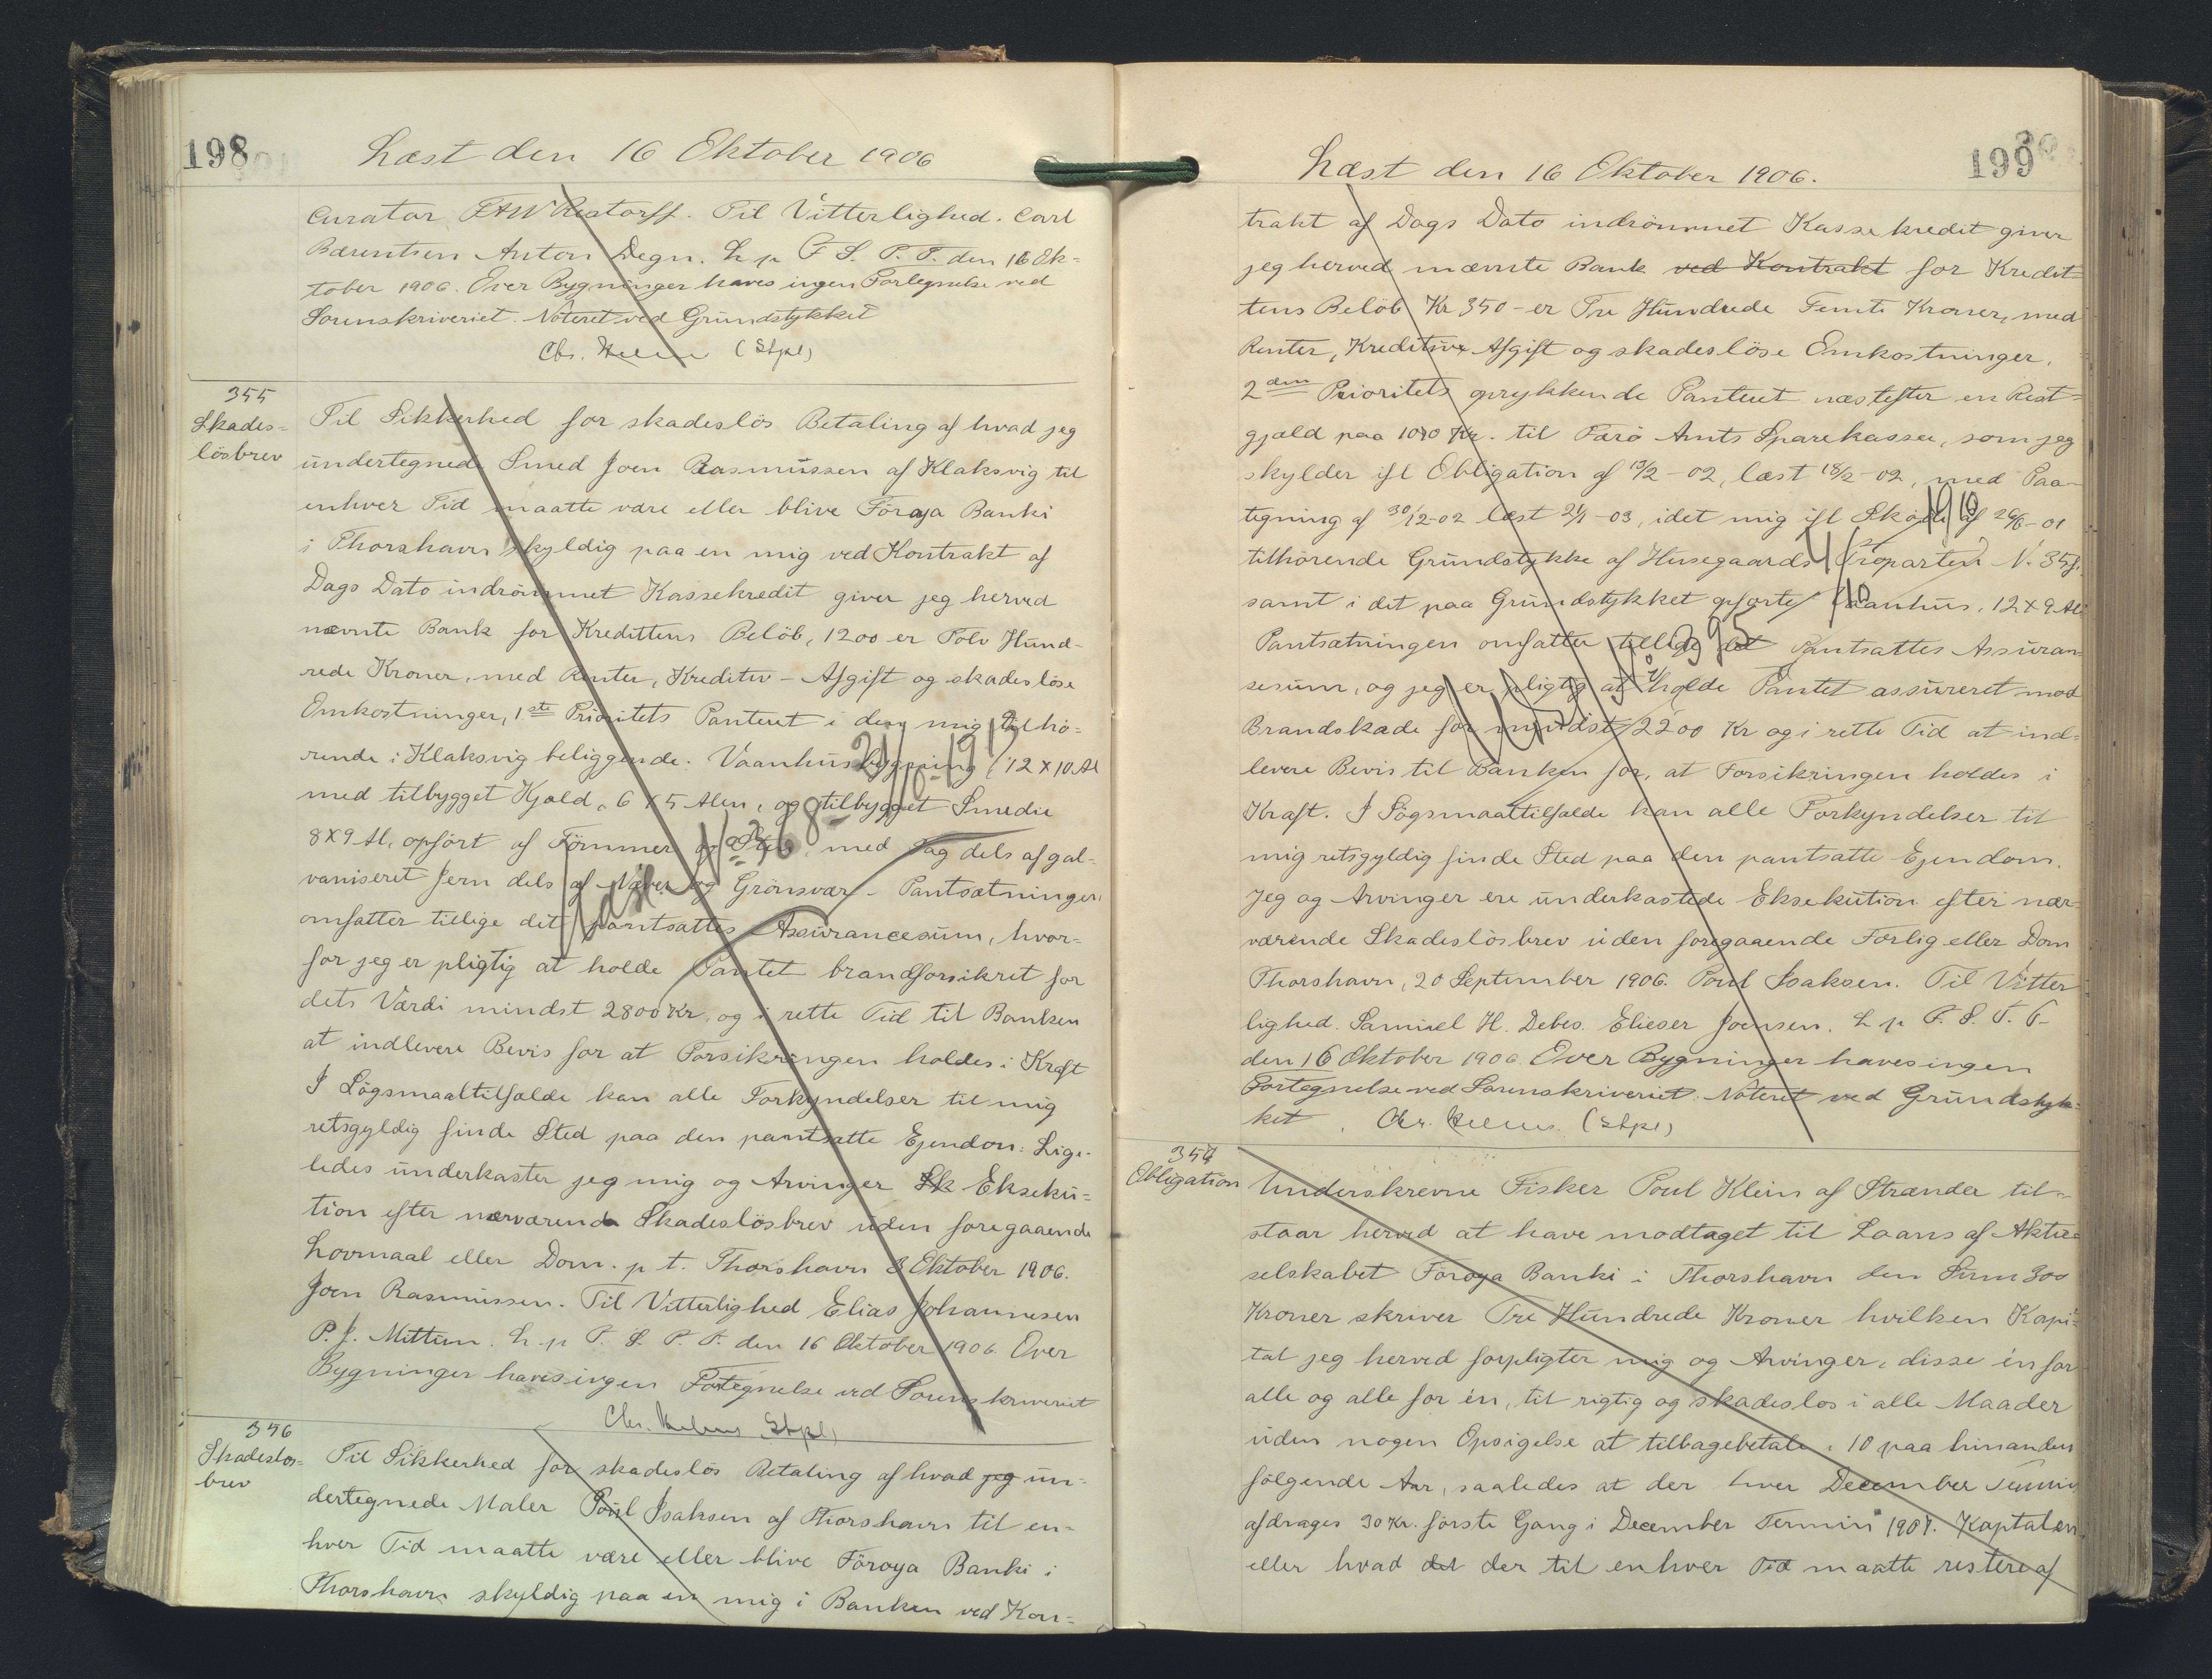 198
Læst den 16 Oktober 1906
Curator Restorff. Til Vitterlighed. Carl
Bærentsen Anton Degn. L p F S. P. T. den 16 Ok-
tober 1906. Over Bygninger haves ingen Fortegnelse ved
Sorenskriveriet. Noteret ved Grundstykket
Chr. (Stpl)
355
Skades-
lösbrev
Til Sikkerhed for skadeslös Betaling af hvad jeg
undertegnede Smed Joen Rasmussen af Klaksvig til
enhver Tid maatte være eller blive Föroya Banki
i Thorshavn skyldig paa en mig ved Kontrakt af
Dags Dato indrömmet Kassekredit giver jeg herved
nævnte Bank for Kredittens Belöb, 1200 er Tolv Hund-
rede Kroner, med Renter, Kreditiv-Afgift og skadeslöse
Omkostninger, 1ste Prioritets Panteret i den mig tilhö-
rende i Klaksvig beliggende: Vaanhusbygning (12 x 10 Al
med tilbygget Kjæld, 6 x 5 Alen, og tilbygget Smedie
8x9 Al, opfört af Tömmer og Sten, med Tag dels af gal-
vaniseret Jern dels af Næver og Grönsvær - Pantsætningen
omfatter tillige det pantsattes Assurancesum, hvor-
for jeg er pligtig at holde Pantet brandforsikret for
dets Værdi mindst 2800 Kr, og i rette Tid til Banken
at indlevere Bevis for at Forsikringen holdes i Kraft
I Sögsmaaltilfælde kan alle Forkyndelser til mig
retsgyldig finde Sted paa den pantsatte Ejendom: Lige-
ledes underkaster jeg mig og Arvinger Sk Ekseku-
tion efter nærværende Skadeslösbrev uden foregaaende
Lovmaal eller Dom. p t. Thorshavn 3 Oktober 1906.
Joen Rasmussen. Til Vitterlighed Elias Johannesen
P. J. Mittun. L p F. S. P. T. den 16 Oktober 1906. Over
Bygninger haves ingen Fortegnelse ved Sorenskriveriet
Chr. Stpl,
356
Skadeslos-
brev
Til Sikkerhed for skadeslös Betaling af hvad jeg un-
dertegnede Maler Poul Isaksen af Thorshavn til en-
hver Tid maatte være eller blive Föroya Banki i
Thorshavn skyldig paa en mig i Banken ved Kon-
199
Læst den 16 Oktober 1906.
trakt af Dags Dato indrömmet Kassekredit giver
jeg herved nævnte Bank ved Kontrakt for Kredit-
tens Belöb Kr 350 - er Tre Hundrede Femti Kroner, med
Renter, Kreditiv Afgift og skadeslöse Omkostninger,
2den Prioritets oprykkende Panteret næstefter en Rest-
gjæld paa Kr. til Færö Amts Sparekasse, som jeg
skylder ifl Obligation af 13/2-02, læst 18/2-02, med Paa-
tegning af 30/12-02 læst 21/1-03, idet mig ifl Sköde af 26/6-01
tilhörende Grundstykke af Husegaards Troparten N. 35f.
samt i det paa Grundstykket opförte Vaanhus, 12 x 9 Al
Pantsætningen omfatter tillige det pantsattes Assuran-
sesum, og jeg er pligtig at holde Pantet assureret mod
Brandskade for mindst 2200 Kr og i rette Tid at ind-
levere Bevis til Banken for, at Forsikringen holdes i
Kraft. I Sögsmaaltilfælde kan alle Forkyndelser til
mig retsgyldig finde Sted paa den pantsatte Ejendom.
Jeg og Arvinger ere underkastede Eksekution efter nær-
værende Skadeslösbrev uden foregaaende Forlig eller Dom
Thorshavn, 20 September 1906. Poul Isaksen. Til Vitter
lighed. Samuel H. Debes. Elieser Joensen. L p F. S. P. T.
den 16 Oktober 1906 Over Bygninger haves ingen
Fortegnelse ved Sorenskriveriet. Noteret ved Grundstyk-
ket. Chr. (Stpl)
357
Obligation
Underskrevne Fisker Poul Klein af Strænder til-
staar herved at have modtaget til Laans af Aktie-
selskabet Föroya Banki i Thorshavn den Sum 300
Kroner skriver Tre Hundrede Kroner hvilken Kapi-
tal jeg herved forpligter mig og Arvinger, disse én for
alle og alle for én, til rigtig og skadeslos i alle Maader
uden nogen Opsigelse at tilbagebetale i 10 paa hinanden
fölgende Aar, saaledes at der hver December Termin
afdrages 30 Kr. förste Gang i December Termin 1907. Kaptalen,
eller hvad det der til enhver Tid maatte restere af